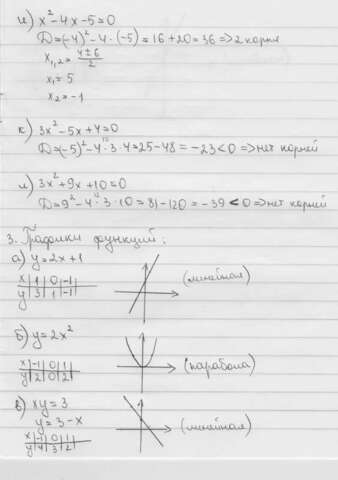 и) x² - 4x - 5 = 0
D = (-4)² - 4 · (-5) = 16 + 20 = 36 => 2 корня
x₁,₂ = (4 ± 6)/2
x₁ = 5
x₂ = -1
к) 3x² - 5x + 4 = 0
D = (-5)² - 4 · 3 · 4 = 25 - 48 = -23 < 0 => нет корней
л) 3x² + 9x + 10 = 0
D = 9² - 4 · 3 · 10 = 81 - 120 = -39 < 0 => нет корней
3. Графики функций:
а) y = 2x + 1
x | 1 | 0 | -1 (линейная)
y | 3 | 1 | -1
б) y = 2x²
x | -1 | 0 | 1 (парабола)
y | 2 | 0 | 2
в) xy = 3
y = 3 - x (линейная)
x | -1 | 0 | 1
y | 4 | 3 | 2